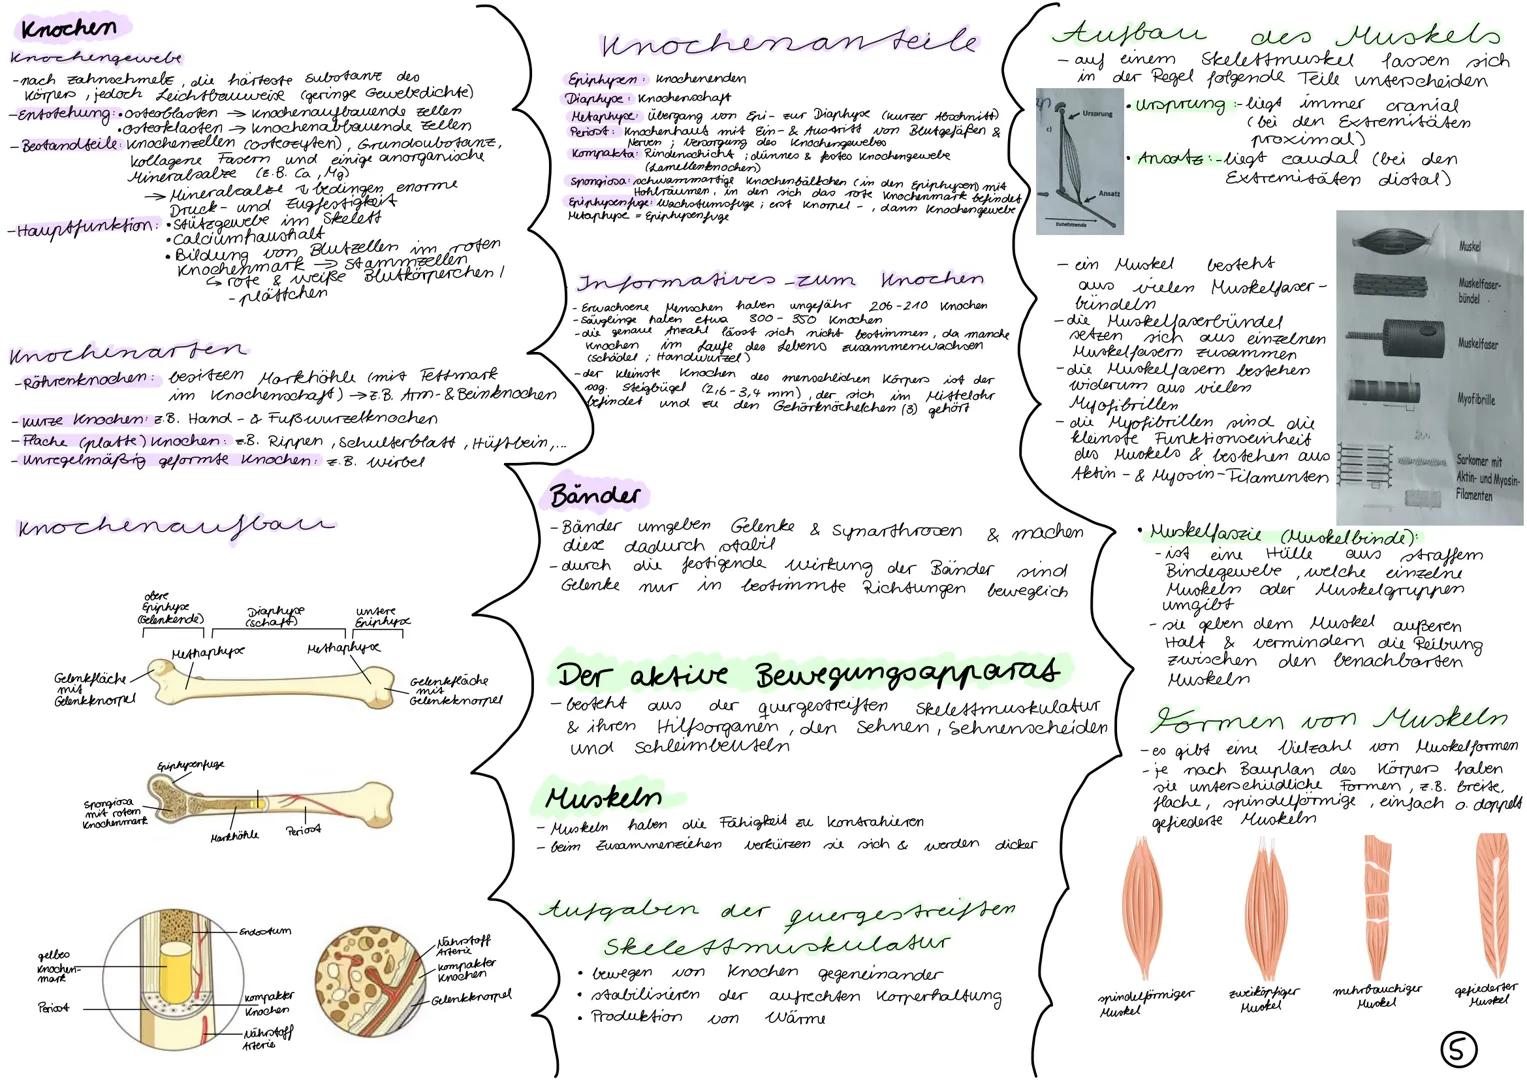 Knochen
Knochengewebe
-nach Zahnschmelz, die härteste Substanz des
Körpers, jedoch Leichtbauweise (geringe Gewebedichte)
-Entstehung: •Osteoblasten → Knochenaufbauende Zellen
•Osteoklasten → Knochenabbauende Zellen
-Bestandteile: Knochenzellen (Osteozyten), Grundsubstanz,
kollagene Fasern und einige anorganische
Mineralsalze (z.B. Ca, Mg)
→ Mineralsalze bedingen enorme
Druck- und Zugfestigkeit
-Hauptfunktion: •Stützgewebe im Skelett
•Calciumhaushalt
•Bildung von Blutzellen im roten
Knochenmark → Stammzellen
↳ rote & weiße Blutkörperchen /
-plättchen
Knochenarten
-Röhrenknochen: besitzen Markhöhle (mit Fettmark
im Knochenschaft) → z.B. Arm- & Beinknochen
-kurze Knochen: z.B. Hand- & Fußwurzelknochen
-Flache (platte) Knochen: z.B. Rippen, Schulterblatt, Hüftbein,...
-Unregelmäßig geformte Knochen: z.B. Wirbel
Knochenaufbau
obere
Epiphyse
(Gelenkende)
Diaphyse
(Schaft)
untere
Epiphyse
Methaphyse
Methaphyse
Gelenkfläche
mit
Gelenkknorpel
Gelenkfläche
mit
Gelenkknorpel
Epiphysenfuge
Spongiosa
mit rotem
Knochenmark
Markhöhle
Periost
gelbes
Knochen-
mark
Periost
Endostum
kompakter
Knochen
Nährstoff
Arterie
Nährstoff
Arterie
kompakter
Knochen
Gelenkknorpel
Knochenanteile
Epiphysen: Knochenenden
Diaphyse: Knochenschaft
Metaphyse: Übergang von Epi- zur Diaphyse (kurzer Abschnitt)
Periost: Knochenhaus mit Ein- & Austritt von Blutgefäßen &
Nerven; Versorgung des Knochengewebes
Kompakta: Rindenschicht; dünnes & festes Knochengewebe
(Lamellenknochen)
Spongiosa: schwammartige Knochenbälkchen (in den Epiphysen) mit
Hohlräumen, in den sich das rote Knochenmark befindet
Epiphysenfuge: Wachstumsfuge; erst Knorpel-, dann Knochengewebe
Metaphyse = Epiphysenfuge
Informatives zum Knochen
- Erwachsene Menschen haben ungefähr 206-210 Knochen
-Säuglinge haben etwa 300 - 350 Knochen
-die genaue Anzahl lässt sich nicht bestimmen, da manche
Knochen im Laufe des Lebens zusammenwachsen
(Schädel; Handwurzel)
-der kleinste Knochen des menschlichen Körpers ist der
sog. Steigbügel (2,6-3,4 mm), der sich im Mittelohr
befindet und zu den Gehörknöchelchen (3) gehört
Bänder
-Bänder umgeben Gelenke & Synarthrosen & machen
diese dadurch stabil
-durch die festigende Wirkung der Bänder sind
Gelenke nur in bestimmte Richtungen beweglich
Der aktive Bewegungsapparat
- besteht aus der quergestreiften Skelettmuskulatur
& ihren Hilfsorganen, den Sehnen, Sehnenscheiden
und Schleimbeuteln
Muskeln
- Muskeln haben die Fähigkeit zu kontrahieren
- beim Zusammenziehen verkürzen sie sich & werden dicker
Aufgaben der quergestreiften
Skelettmuskulatur
• bewegen von Knochen gegeneinander
• stabilisieren der aufrechten Körperhaltung
• Produktion von Wärme
Aufbau des Muskels
- auf einem Skelettmuskel lassen sich
in der Regel folgende Teile unterscheiden
• Ursprung: -liegt immer cranial
(bei den Extremitäten
proximal)
• Ansatz: -liegt caudal (bei den
Extremitäten distal)
c)
Ursprung
Ansatz
- ein Muskel besteht
aus vielen Muskelfaser-
bündeln
-die Muskelfaserbündel
setzen sich aus einzelnen
Muskelfasern zusammen
-die Muskelfasern bestehen
widerum aus vielen
Myofibrillen
-die Myofibrillen sind die
kleinste Funktionseinheit
des Muskels & bestehen aus
Aktin- & Myosin-Filamenten
Muskel
Muskelfaser-
bündel
Muskelfaser
Myofibrille
Sarkomer mit
Aktin- und Myosin-
Filamenten
• Muskelfaszie (Muskelbinde):
-ist eine Hülle aus straffem
Bindegewebe, welche einzelne
Muskeln oder Muskelgruppen
umgibt
- sie geben dem Muskel äußeren
Halt & vermindern die Reibung
zwischen den benachbarten
Muskeln
Formen von Muskeln
-es gibt eine Vielzahl von Muskelformen
-je nach Bauplan des Körpers haben
sie unterschiedliche Formen, z.B. breite,
flache, spindelförmige, einfach o. doppelt
gefiederte Muskeln
spindelförmiger
Muskel
zweiköpfiger
Muskel
mehrbauchiger
Muskel
gefiederter
Muskel
5